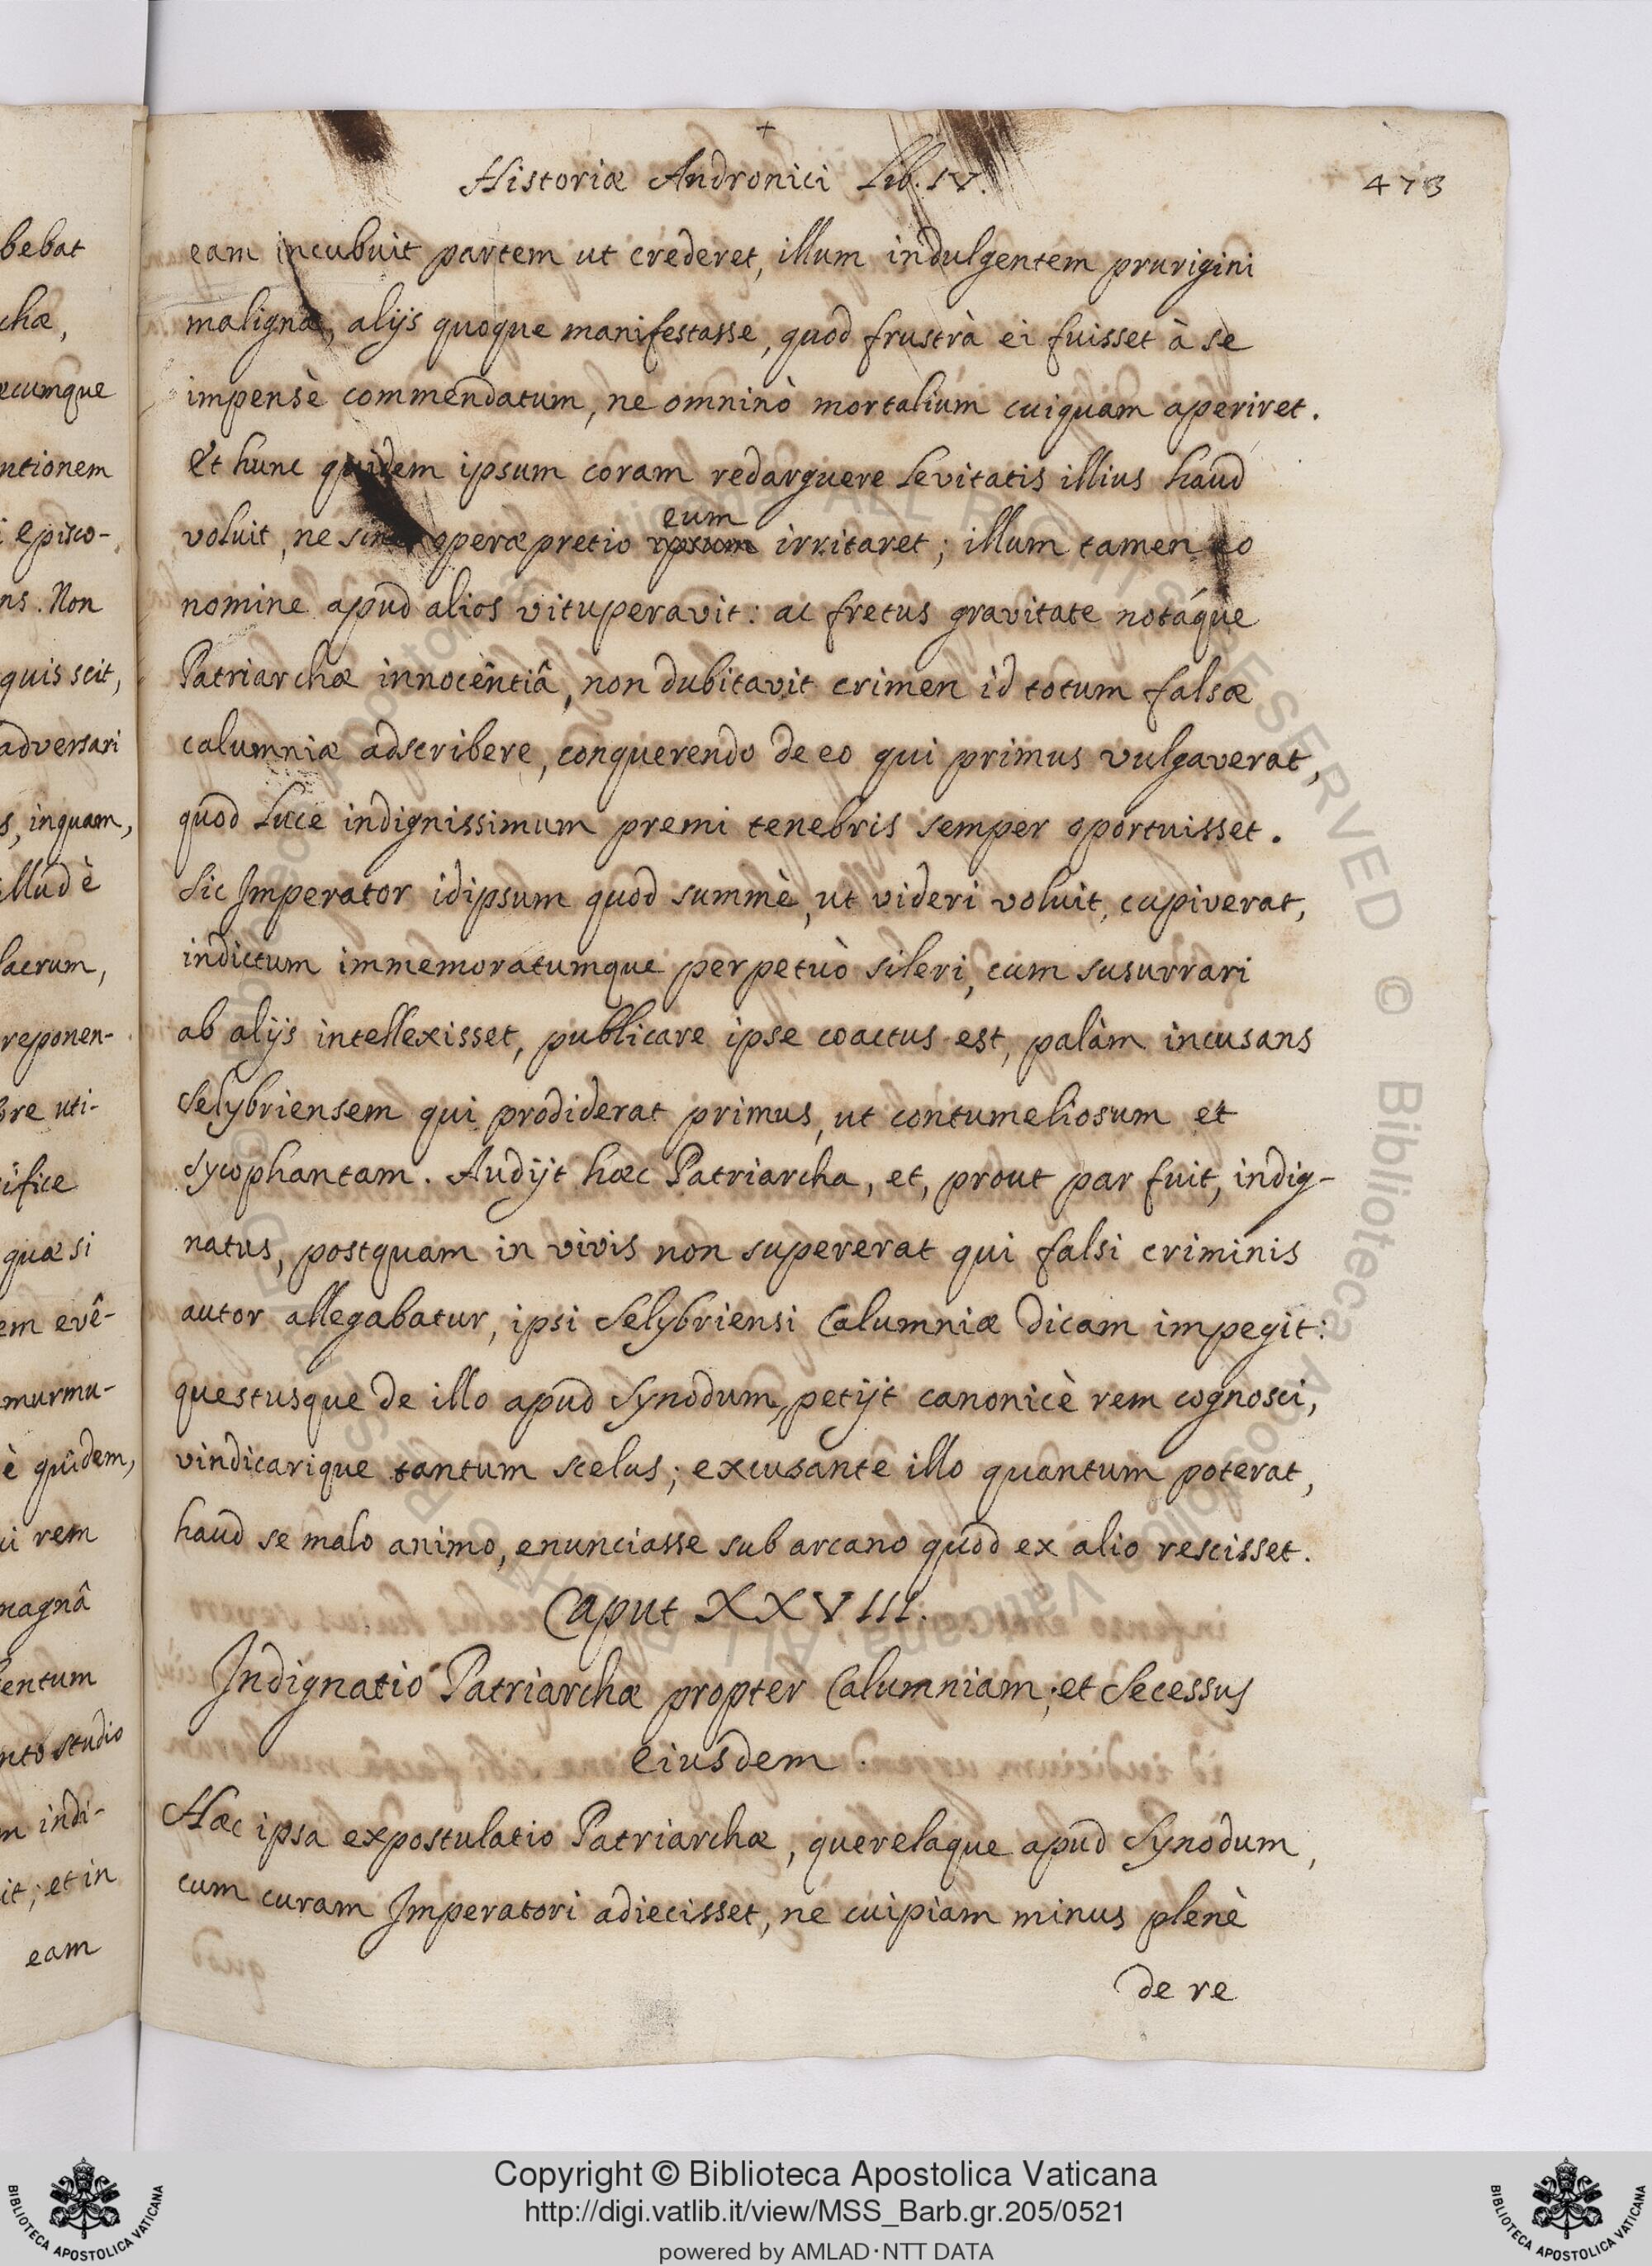 Historiæ Andronici Lib. IV.
473
eam incubuit partem ut crederet, illum indulgentem prurigini
malignæ, alijs quoque manifestasse, quod frustrà ei fuisset à se
impensè commendatum, ne omninò mortalium cuiquam aperiret.
Et hunc quidem ipsum coram redarguere levitatis illius haud
eum
voluit, ne sine operæpretio ipsum irritaret; illum tamen eo
nomine apud alios vituperavit: ac fretus gravitate notáque
Patriarchæ innocentiâ, non dubitavit crimen id totum falsæ
calumniæ adscribere, conquerendo de eo qui primus vulgaverat,
quod luce indignissimum premi tenebris semper oportuisset.
Sic Imperator idipsum quod summè, ut videri voluit, cupiverat,
indictum immemoratumque perpetuò sileri, cum susurrari
ab alijs intellexisset, publicare ipse coactus est, palàm incusans
Selybriensem qui prodiderat primus, ut contumeliosum et
sycophantam. Audijt hæc Patriarcha, et, prout par fuit, indig-
natus, postquam in vivis non supererat qui falsi criminis
autor allegabatur, ipsi Selybriensi Calumniæ dicam impegit:
questusque de illo apud Synodum, petijt canonicè rem cognosci,
vindicarique tantum scelus; excusante illo quantum poterat,
haud se malo animo, enunciasse sub arcano quod ex alio rescisset.
Caput XXVIII.
Indignatio Patriarchæ propter Calumniam; et Secessus
eiusdem.
Hæc ipsa expostulatio Patriarchæ, querelaque apud Synodum,
cum curam Imperatori adiecisset, ne cuipiam minus plenè
de re
bebat
chæ,
ecumque
ntionem
i episco-
ns. Non
quis scit,
adversari
s, inquam,
illud è
lacrum,
reponen-
bre uti-
ifice
quæ si
em evê-
murmu-
è quidem,
ui rem
magnâ
lentum
nto studio
m indi-
it; et in
eam
Copyright © Biblioteca Apostolica Vaticana
http://digi.vatlib.it/view/MSS_Barb.gr.205/0521
powered by AMLAD·NTT DATA
BIBLIOTECA APOSTOLICA VATICANA
BIBLIOTECA APOSTOLICA VATICANA